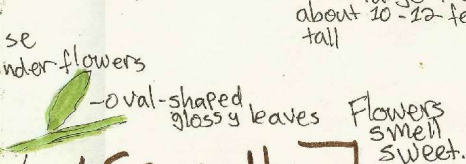 about 10-12 fe
tall
se
nder flowers
-oval-shaped
glossy leaves
Flowers
smell
sweet.